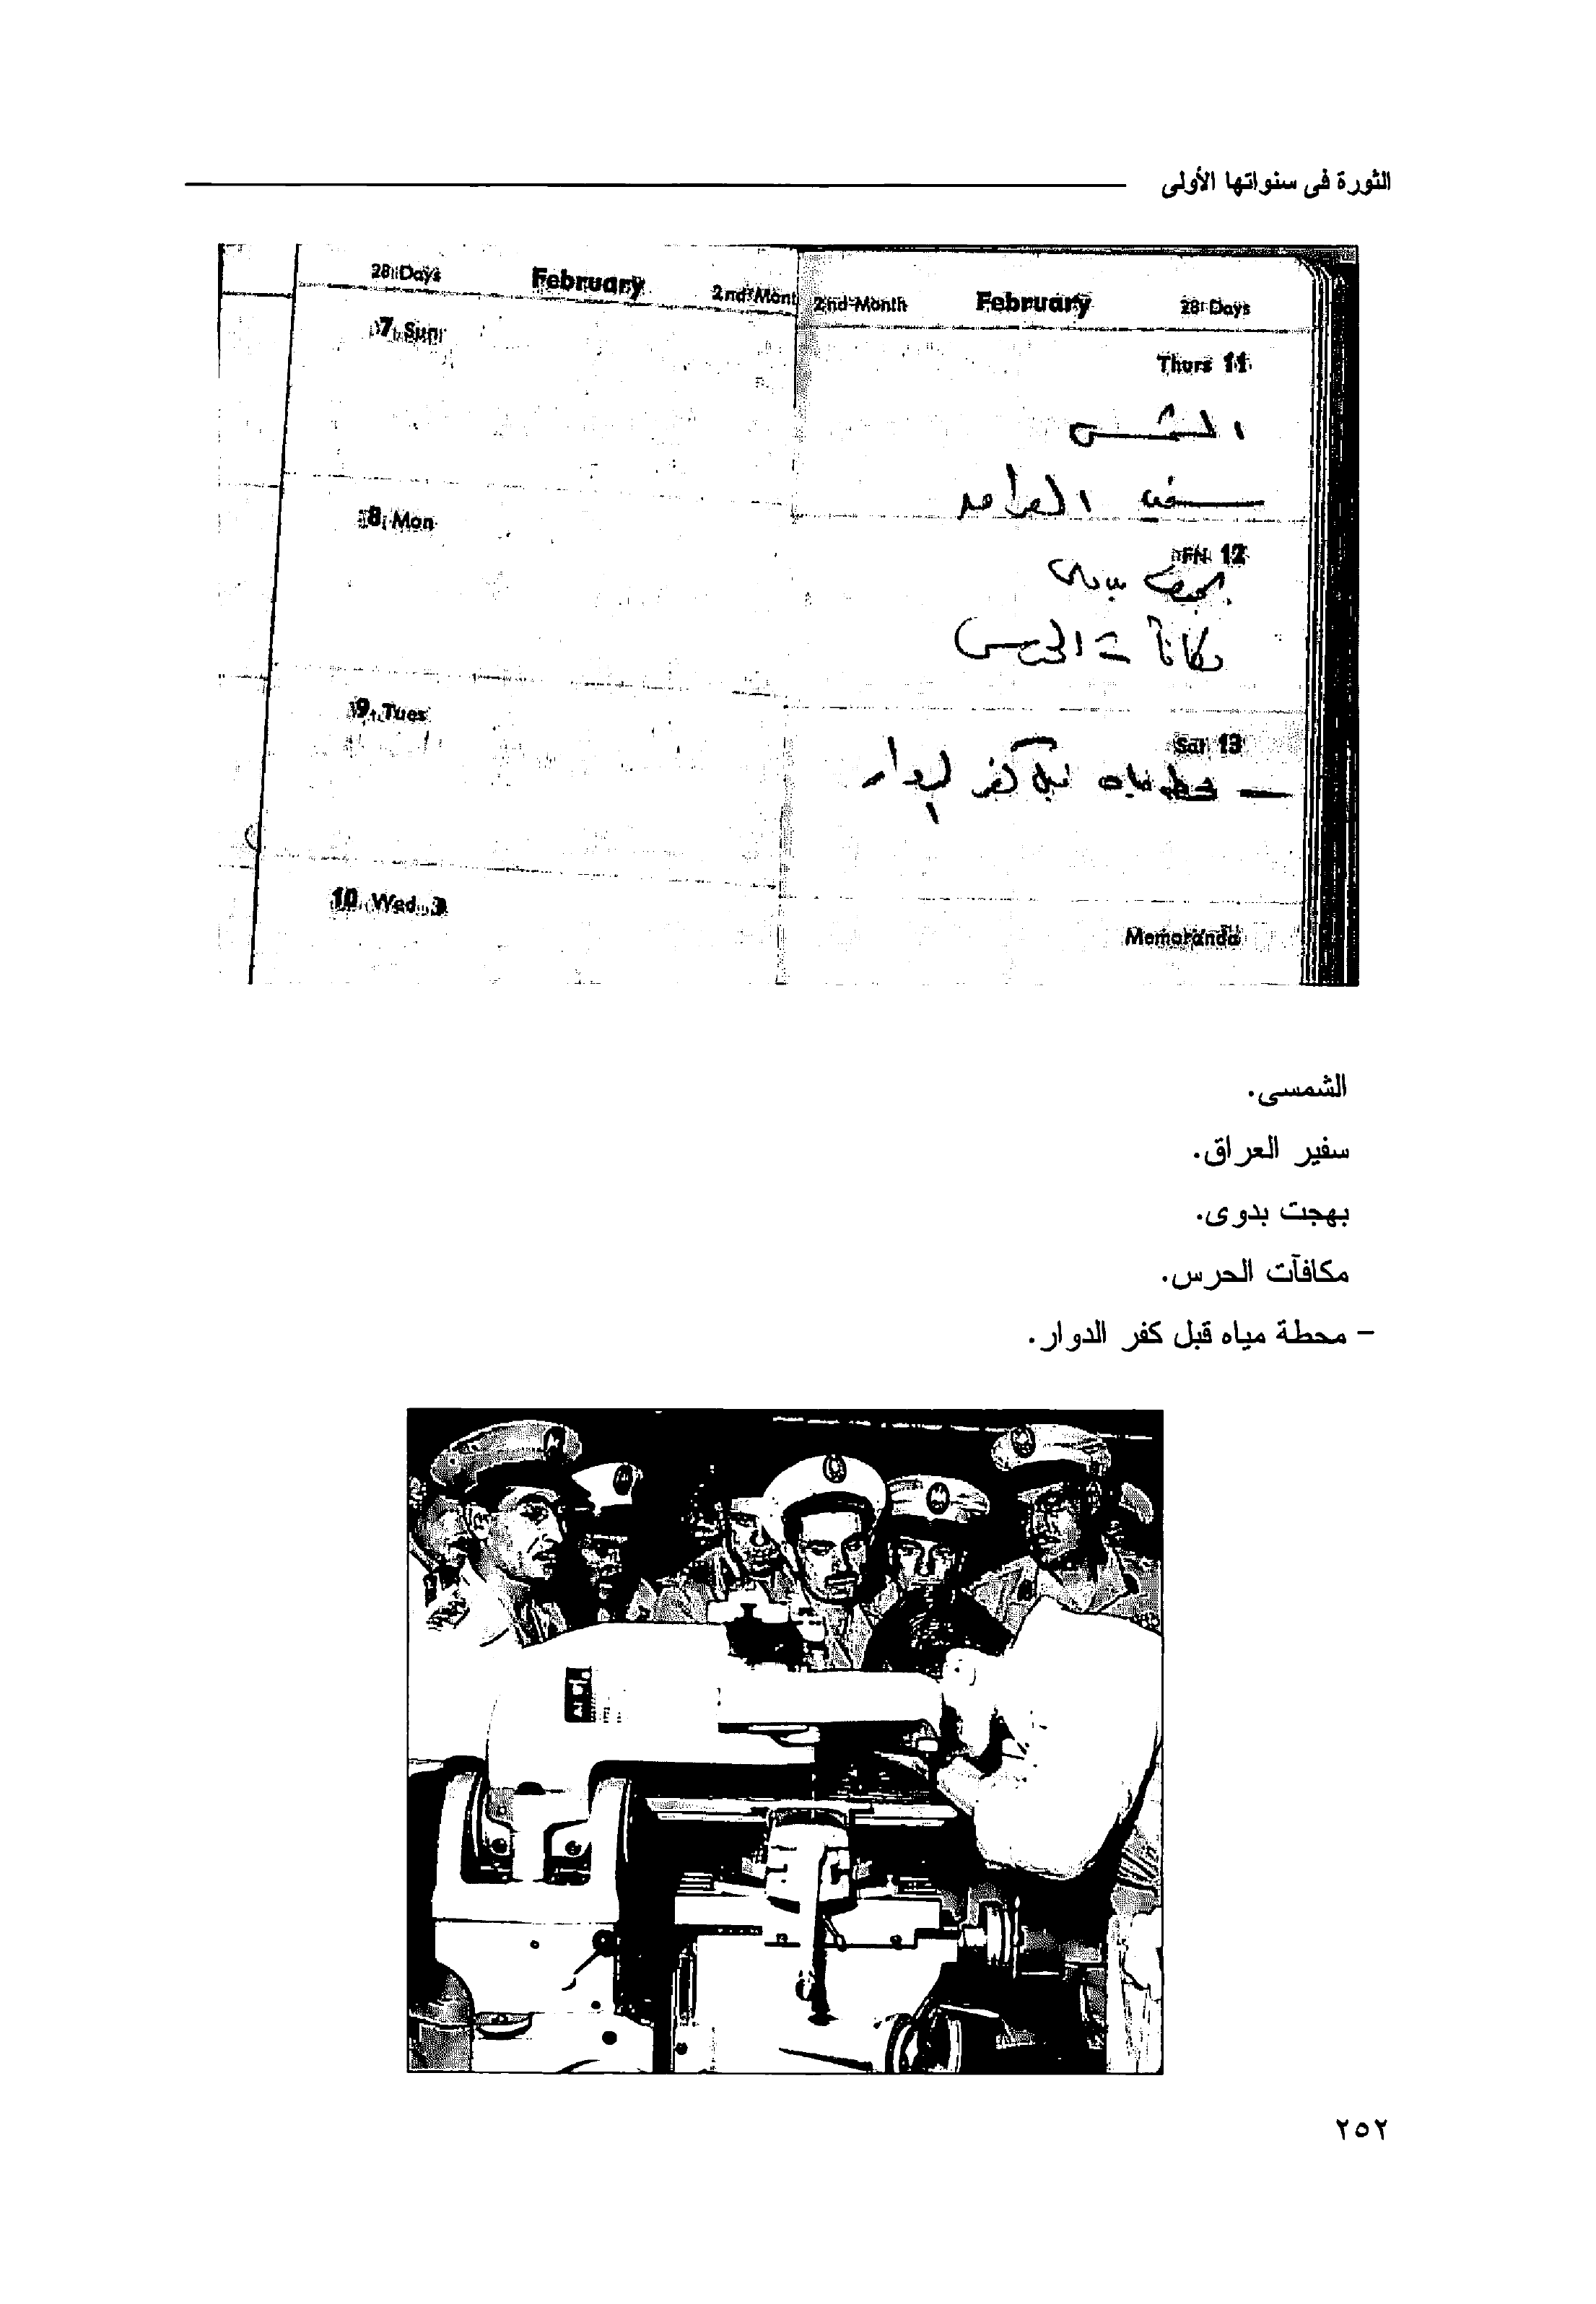 الثورة فى سنواتها الأولى
28 Days February 2nd Mont
7 Sun
8 Mon
9 Tues
10 Wed
2nd Month February 28 Days
Thurs 11
الشمسى
سفير العراق
Fri 12
بهجت بدوى
مكافآت الحرس
Sat 13
– محطة مياه قبل كفر الدوار
Memoranda
الشمسى.
سفير العراق.
بهجت بدوى.
مكافآت الحرس.
– محطة مياه قبل كفر الدوار.
٢٥٢